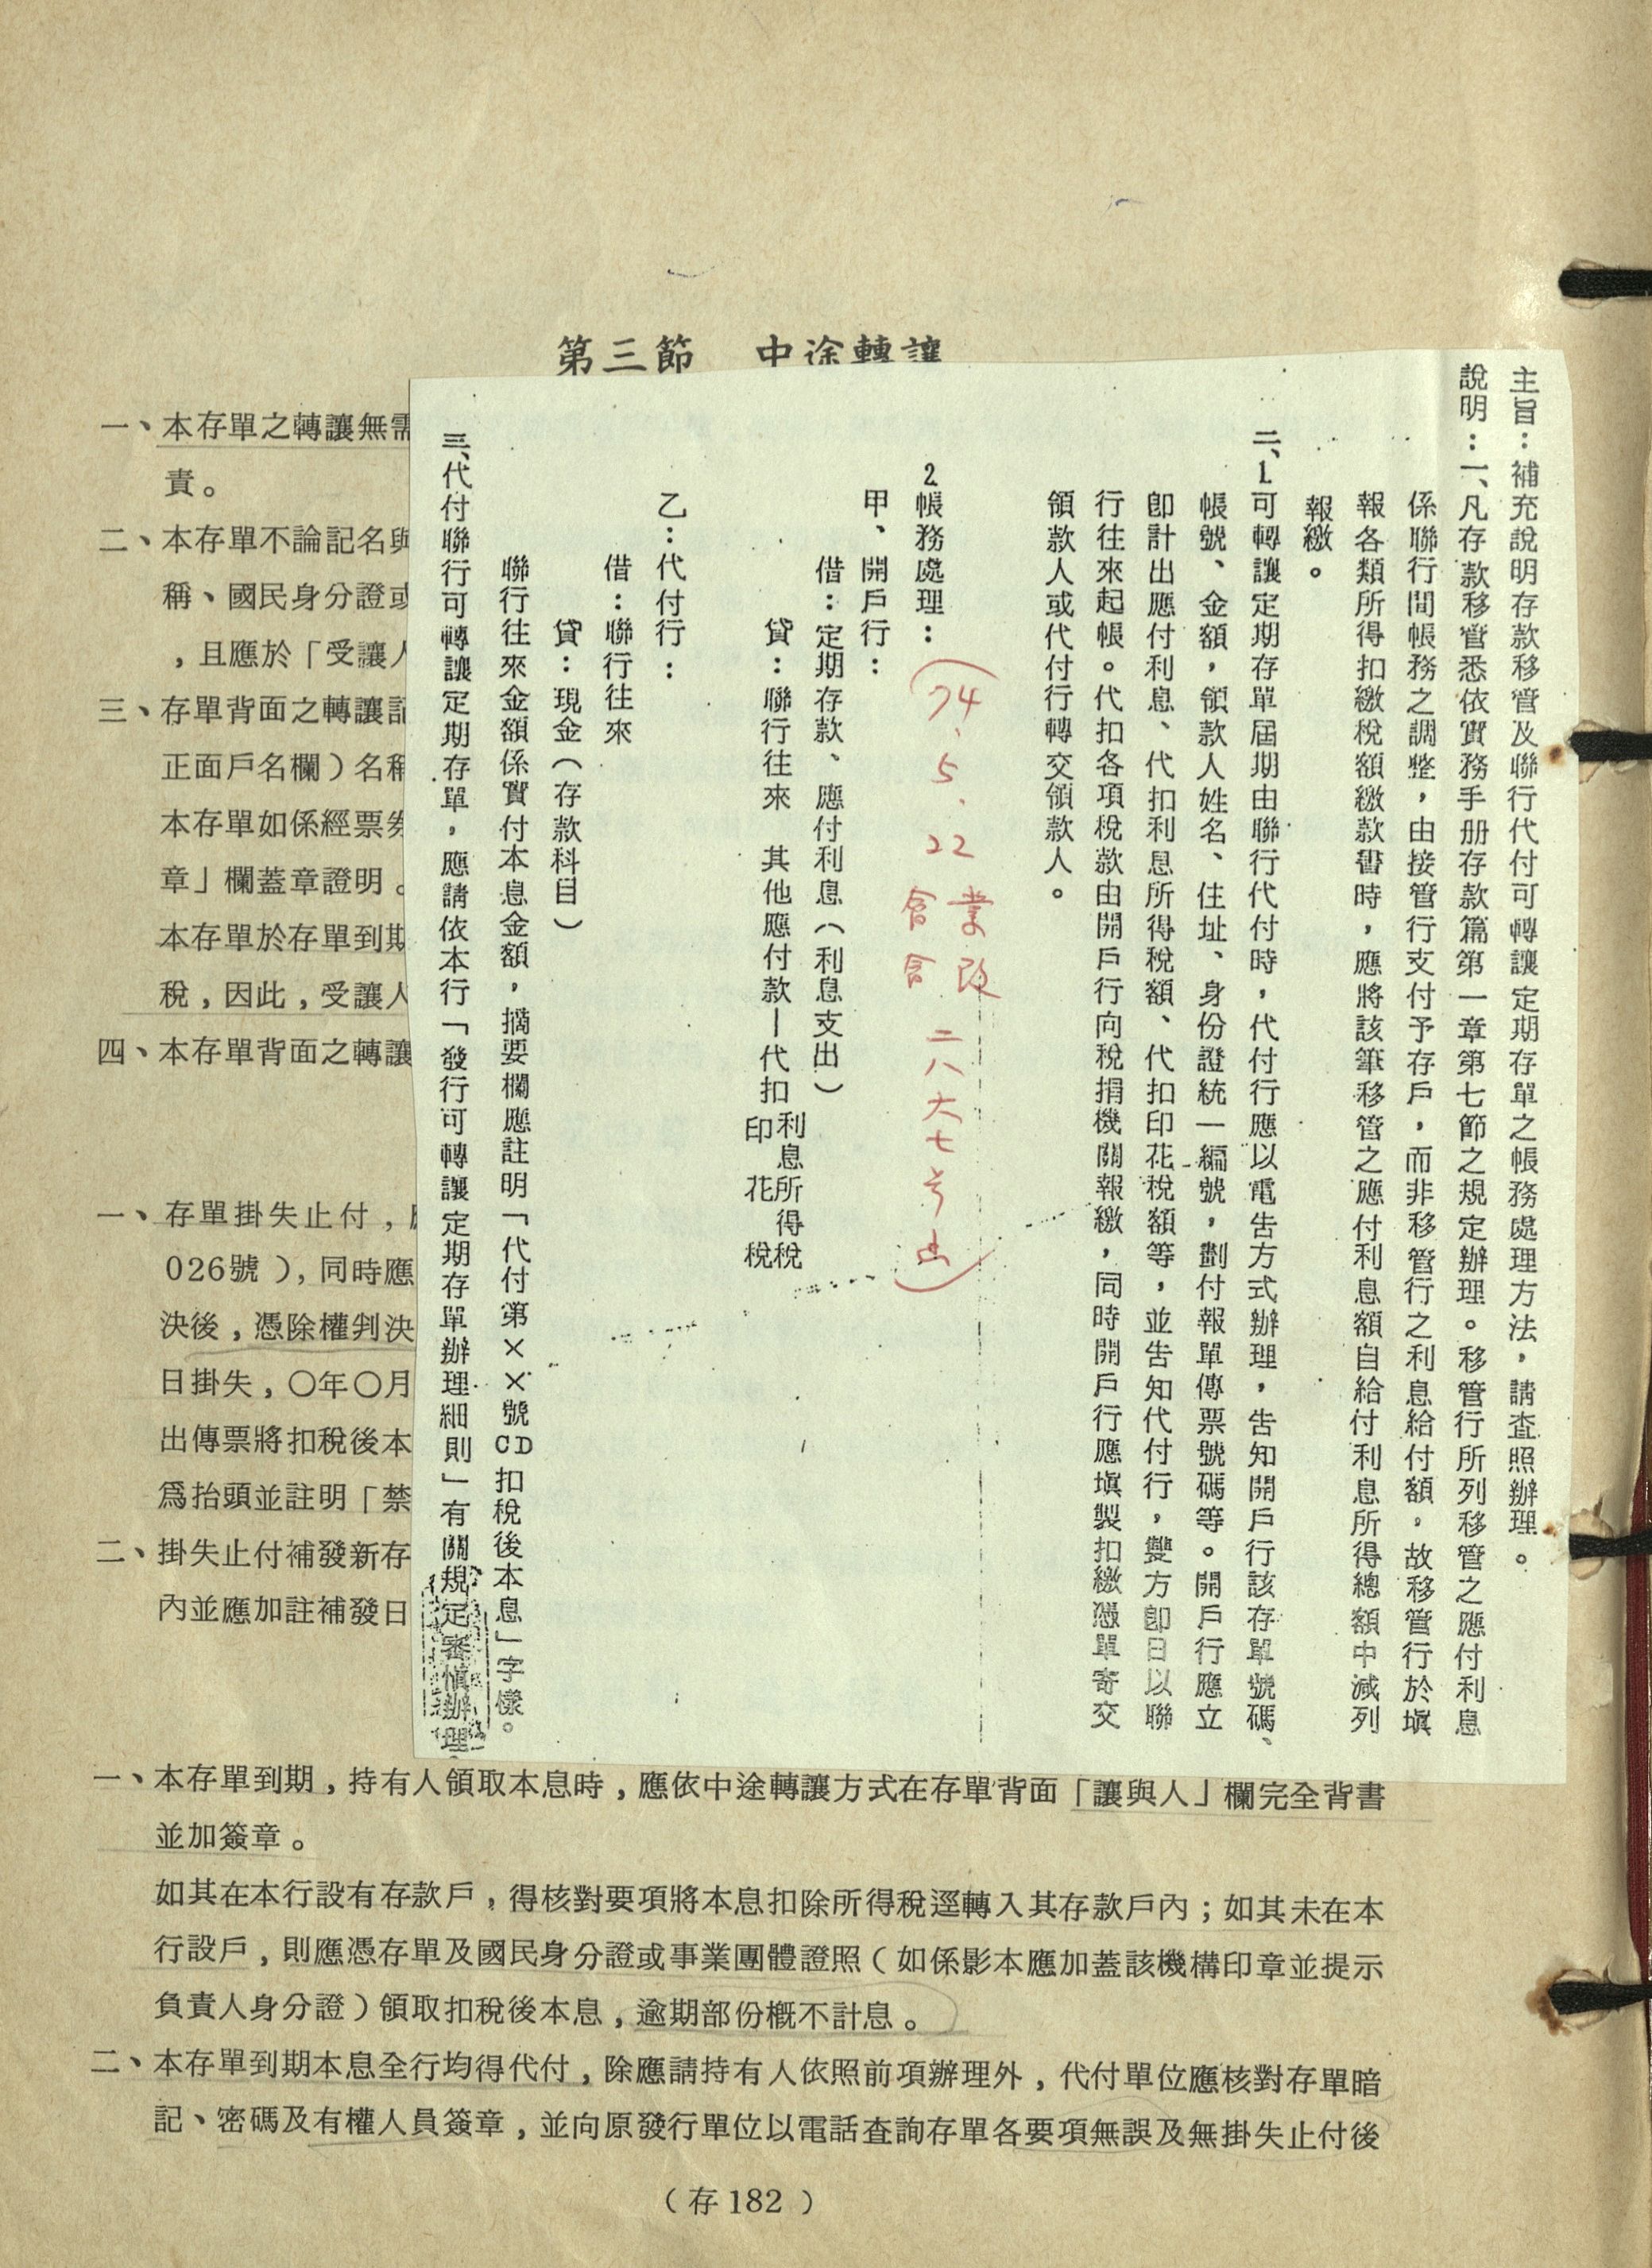 第三節　中途轉讓
一、本存單之轉讓無需
責。
二、本存單不論記名與
稱、國民身分證或
，且應於「受讓人
三、存單背面之轉讓記
正面戶名欄）名稱
本存單如係經票券
章」欄蓋章證明。
本存單於存單到期
稅，因此，受讓人
四、本存單背面之轉讓
一、存單掛失止付，
026號），同時應
決後，憑除權判決
日掛失，〇年〇月
出傳票將扣稅後本
爲抬頭並註明「禁
二、掛失止付補發新存
內並應加註補發日
主旨：補充說明存款移管及聯行代付可轉讓定期存單之帳務處理方法，請查照辦理。
說明：一、凡存款移管悉依實務手册存款篇第一章第七節之規定辦理。移管行所列移管之應付利息
係聯行間帳務之調整，由接管行支付予存戶，而非移管行之利息給付額，故移管行於塡
報各類所得扣繳稅額繳款書時，應將該筆移管之應付利息額自給付利息所得總額中減列
報繳。
二、1.可轉讓定期存單屆期由聯行代付時，代付行應以電告方式辦理，告知開戶行該存單號碼、
帳號、金額，領款人姓名、住址、身份證統一編號，劃付報單傳票號碼等。開戶行應立
卽計出應付利息、代扣利息所得稅額、代扣印花稅額等，並告知代付行，雙方卽日以聯
行往來起帳。代扣各項稅款由開戶行向稅捐機關報繳，同時開戶行應塡製扣繳憑單寄交
領款人或代付行轉交領款人。
2.帳務處理：
（74.5.22業改會二八六七号函）
甲、開戶行：
借：定期存款、應付利息（利息支出）
貸：聯行往來　其他應付款—代扣利息所得稅
印花稅
乙：代付行：
借：聯行往來
貸：現金（存款科目）
聯行往來金額係實付本息金額，摘要欄應註明「代付第××號CD扣稅後本息」字樣。
三、代付聯行可轉讓定期存單，應請依本行「發行可轉讓定期存單辦理細則」有關規定審慎辦理。
一、本存單到期，持有人領取本息時，應依中途轉讓方式在存單背面「讓與人」欄完全背書
並加簽章。
如其在本行設有存款戶，得核對要項將本息扣除所得稅逕轉入其存款戶內；如其未在本
行設戶，則應憑存單及國民身分證或事業團體證照（如係影本應加蓋該機構印章並提示
負責人身分證）領取扣稅後本息，逾期部份概不計息。
二、本存單到期本息全行均得代付，除應請持有人依照前項辦理外，代付單位應核對存單暗
記、密碼及有權人員簽章，並向原發行單位以電話查詢存單各要項無誤及無掛失止付後
（存182）